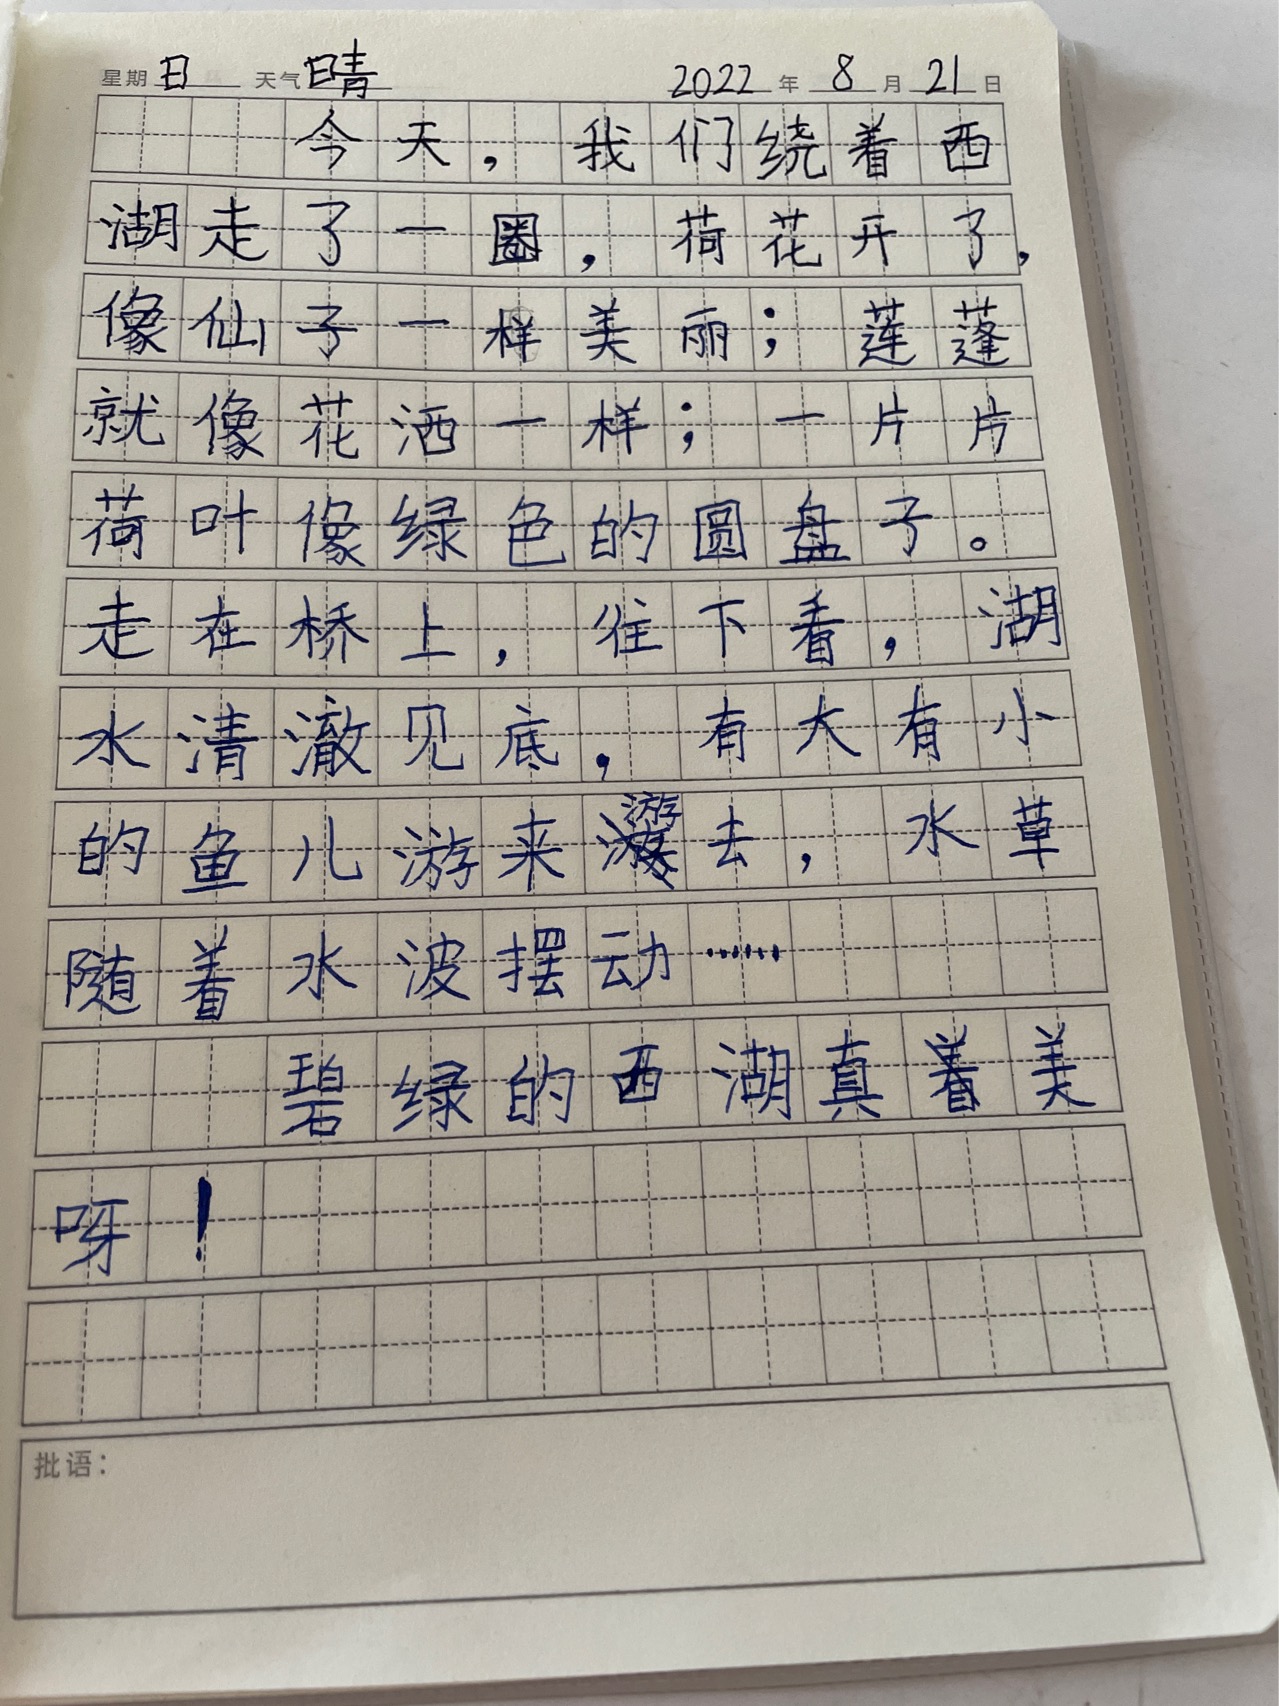 星期 日 天气 晴 2022 年 8 月 21 日
今天，我们绕着西
湖走了一圈，荷花开了，
像仙子一样美丽；莲蓬
就像花洒一样；一片片
荷叶像绿色的圆盘子。
走在桥上，往下看，湖
水清澈见底，有大有小
的鱼儿游来游去，水草
随着水波摆动……
碧绿的西湖真着美
呀！
批语：